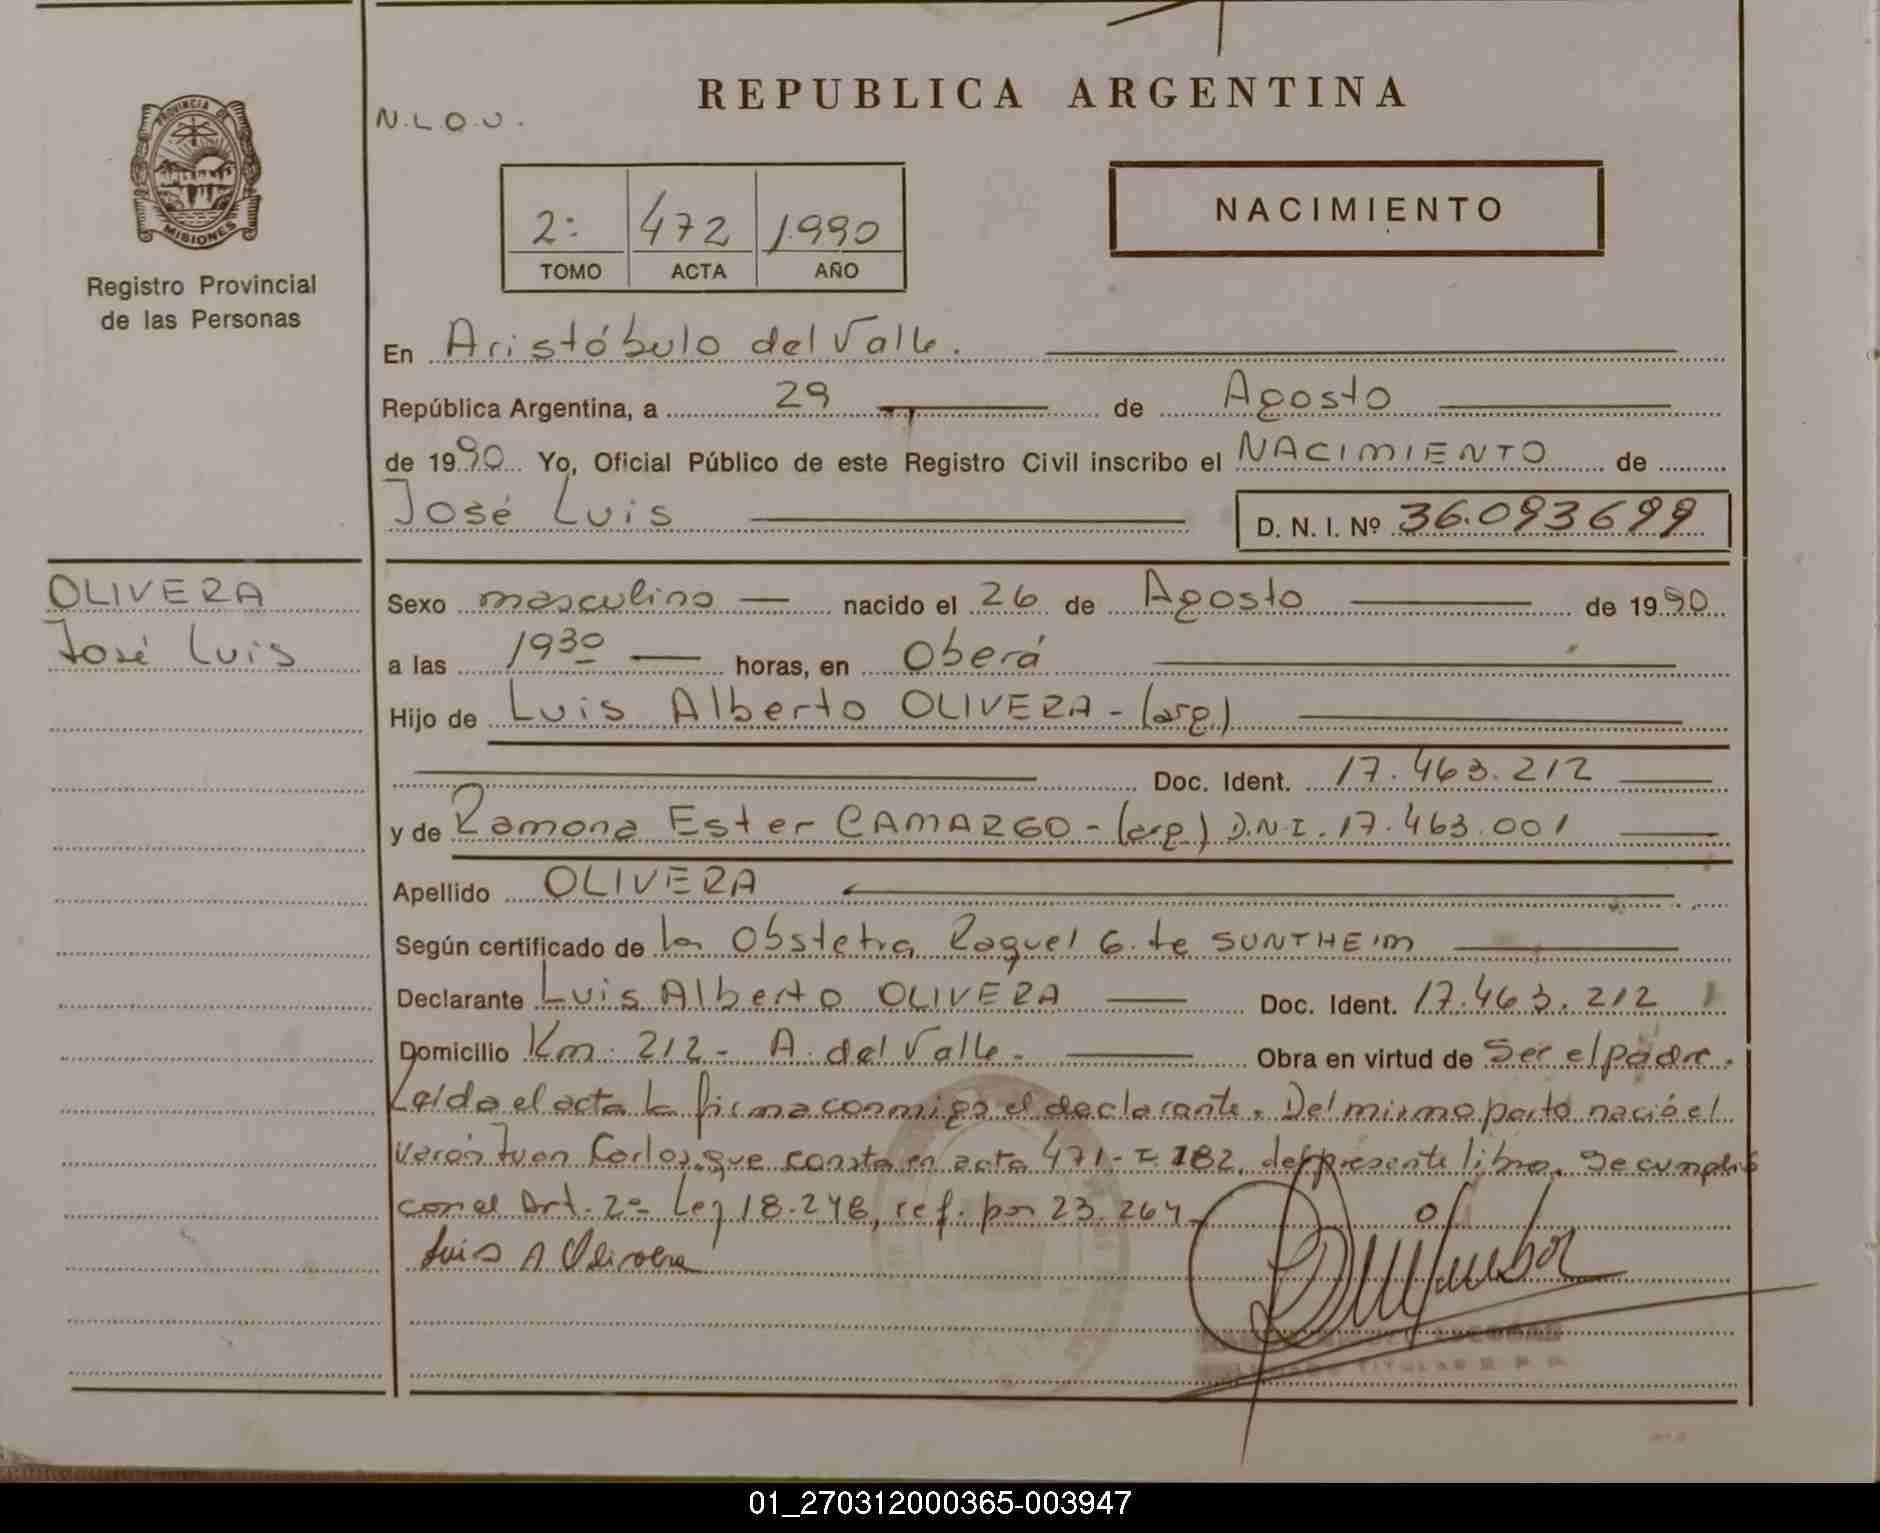 REPUBLICA ARGENTINA
N.L.O.U.
PROVINCIA DE
MISIONES
Registro Provincial
de las Personas
2: 472 1990
TOMO ACTA AÑO
NACIMIENTO
En Aristóbulo del Valle.
República Argentina, a 29 de Agosto
de 1990 Yo, Oficial Público de este Registro Civil inscribo el NACIMIENTO de
José Luis D. N. I. Nº 36.093699
OLIVERA
José Luis
Sexo masculino nacido el 26 de Agosto de 1990
a las 1930 horas, en Oberá
Hijo de Luis Alberto OLIVERA - (arg.)
Doc. Ident. 17.463.212
y de Ramona Ester CAMARGO - (arg.) D.N.I. 17.463.001
Apellido OLIVERA
Según certificado de la Obstetra Raquel G. de SUNTHEIM
Declarante Luis Alberto OLIVERA Doc. Ident. 17.463.212
Domicilio Km. 212 - A. del Valle - Obra en virtud de Ser el padre.
Leída el acta la firma conmigo el declarante. Del mismo parto nació el
varón Juan Carlos, que consta en acta 471 - 182, del presente libro. Se cumplió
con el Art. 2º Ley 18.248, ref. por 23.264.
Luis A Olivera
TITULAR R. P. P.
01_270312000365-003947